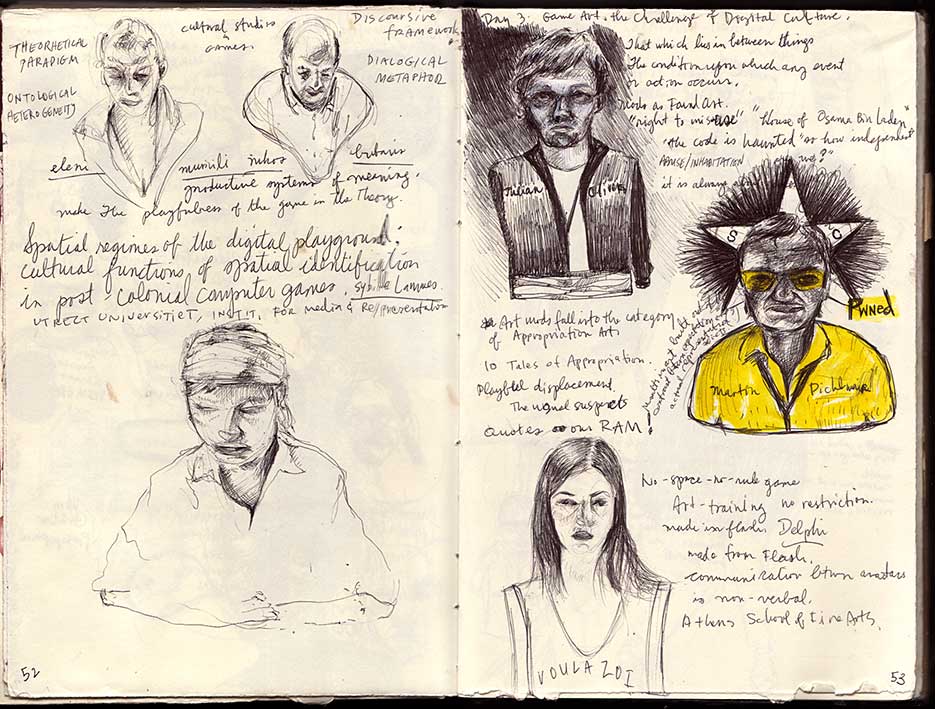 THEORHETICAL
PARADIGM
ONTOLOGICAL
HETEROGENEITY
cultural studies
&
games.
DISCOURSIVE
framework
DIALOGICAL
METAPHOR
eleni
mumili juhos
bubaris
productive systems of meaning.
make the playfulness of the game in the Theory.
Spatial regimes of the digital playground:
cultural functions of spatial identification
in post-colonial computer games. Sybille Lammes.
UTRECT UNIVERSITIET, INSTIT. FOR media & Re/presentation
52
Day 3. Game Art & the Challenge of Digital Culture.
That which lies in between things
The condition upon which any event
or action occurs.
mods as Found Art.
"right to misuse" "House of Osama Bin Laden"
"the code is haunted" "or how independent
ABUSE/INHABITATION are we?"
it is always
Julian Oliver
S
O
PWNed
Martin Pichlmair
Art mods fall into the category
of Appropriation Art
10 Tales of Appropriation.
Playful displacement.
The usual suspects
Quotes our RAM!
actual representation
No-space-no-rule game
Art-training no restriction.
made in flash. Delphi
made from Flash.
communication btwn avatars
is non-verbal.
Athens School of Fine Arts.
VOULA ZOI
53